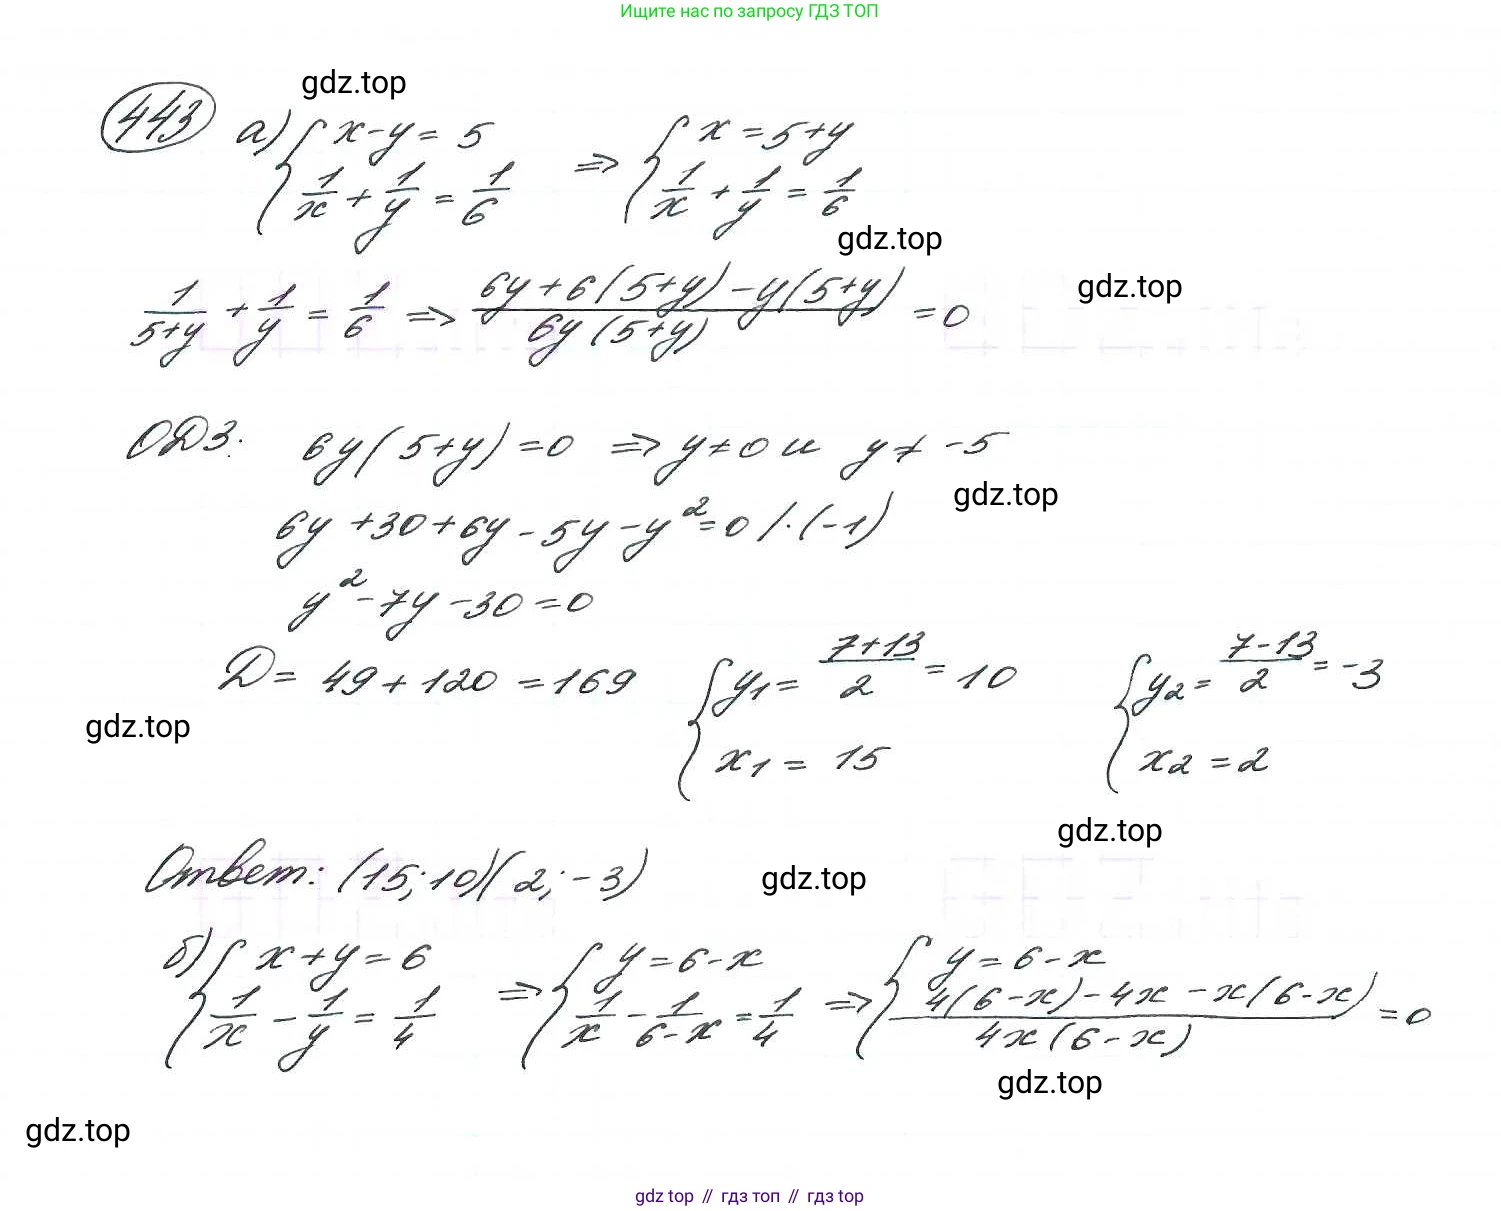 Ищите нас по запросу ГДЗ ТОП
gdz.top
443 а) { x - y = 5 ; 1/x + 1/y = 1/6 ⇒ { x = 5 + y ; 1/x + 1/y = 1/6
gdz.top
gdz.top
1/(5+y) + 1/y = 1/6 ⇒ (6y + 6(5+y) - y(5+y))/(6y(5+y)) = 0
ОДЗ: 6y(5+y) = 0 ⇒ y ≠ 0 и y ≠ -5
gdz.top
6y + 30 + 6y - 5y - y² = 0 / · (-1)
y² - 7y - 30 = 0
D = 49 + 120 = 169 { y₁ = (7+13)/2 = 10 ; x₁ = 15 { y₂ = (7-13)/2 = -3 ; x₂ = 2
gdz.top
gdz.top
Ответ: (15; 10)(2; -3)
gdz.top
б) { x + y = 6 ; 1/x - 1/y = 1/4 ⇒ { y = 6 - x ; 1/x - 1/(6-x) = 1/4 ⇒ { y = 6 - x ; (4(6-x) - 4x - x(6-x))/(4x(6-x)) = 0
gdz.top
gdz.top
gdz top // гдз топ // гдз top